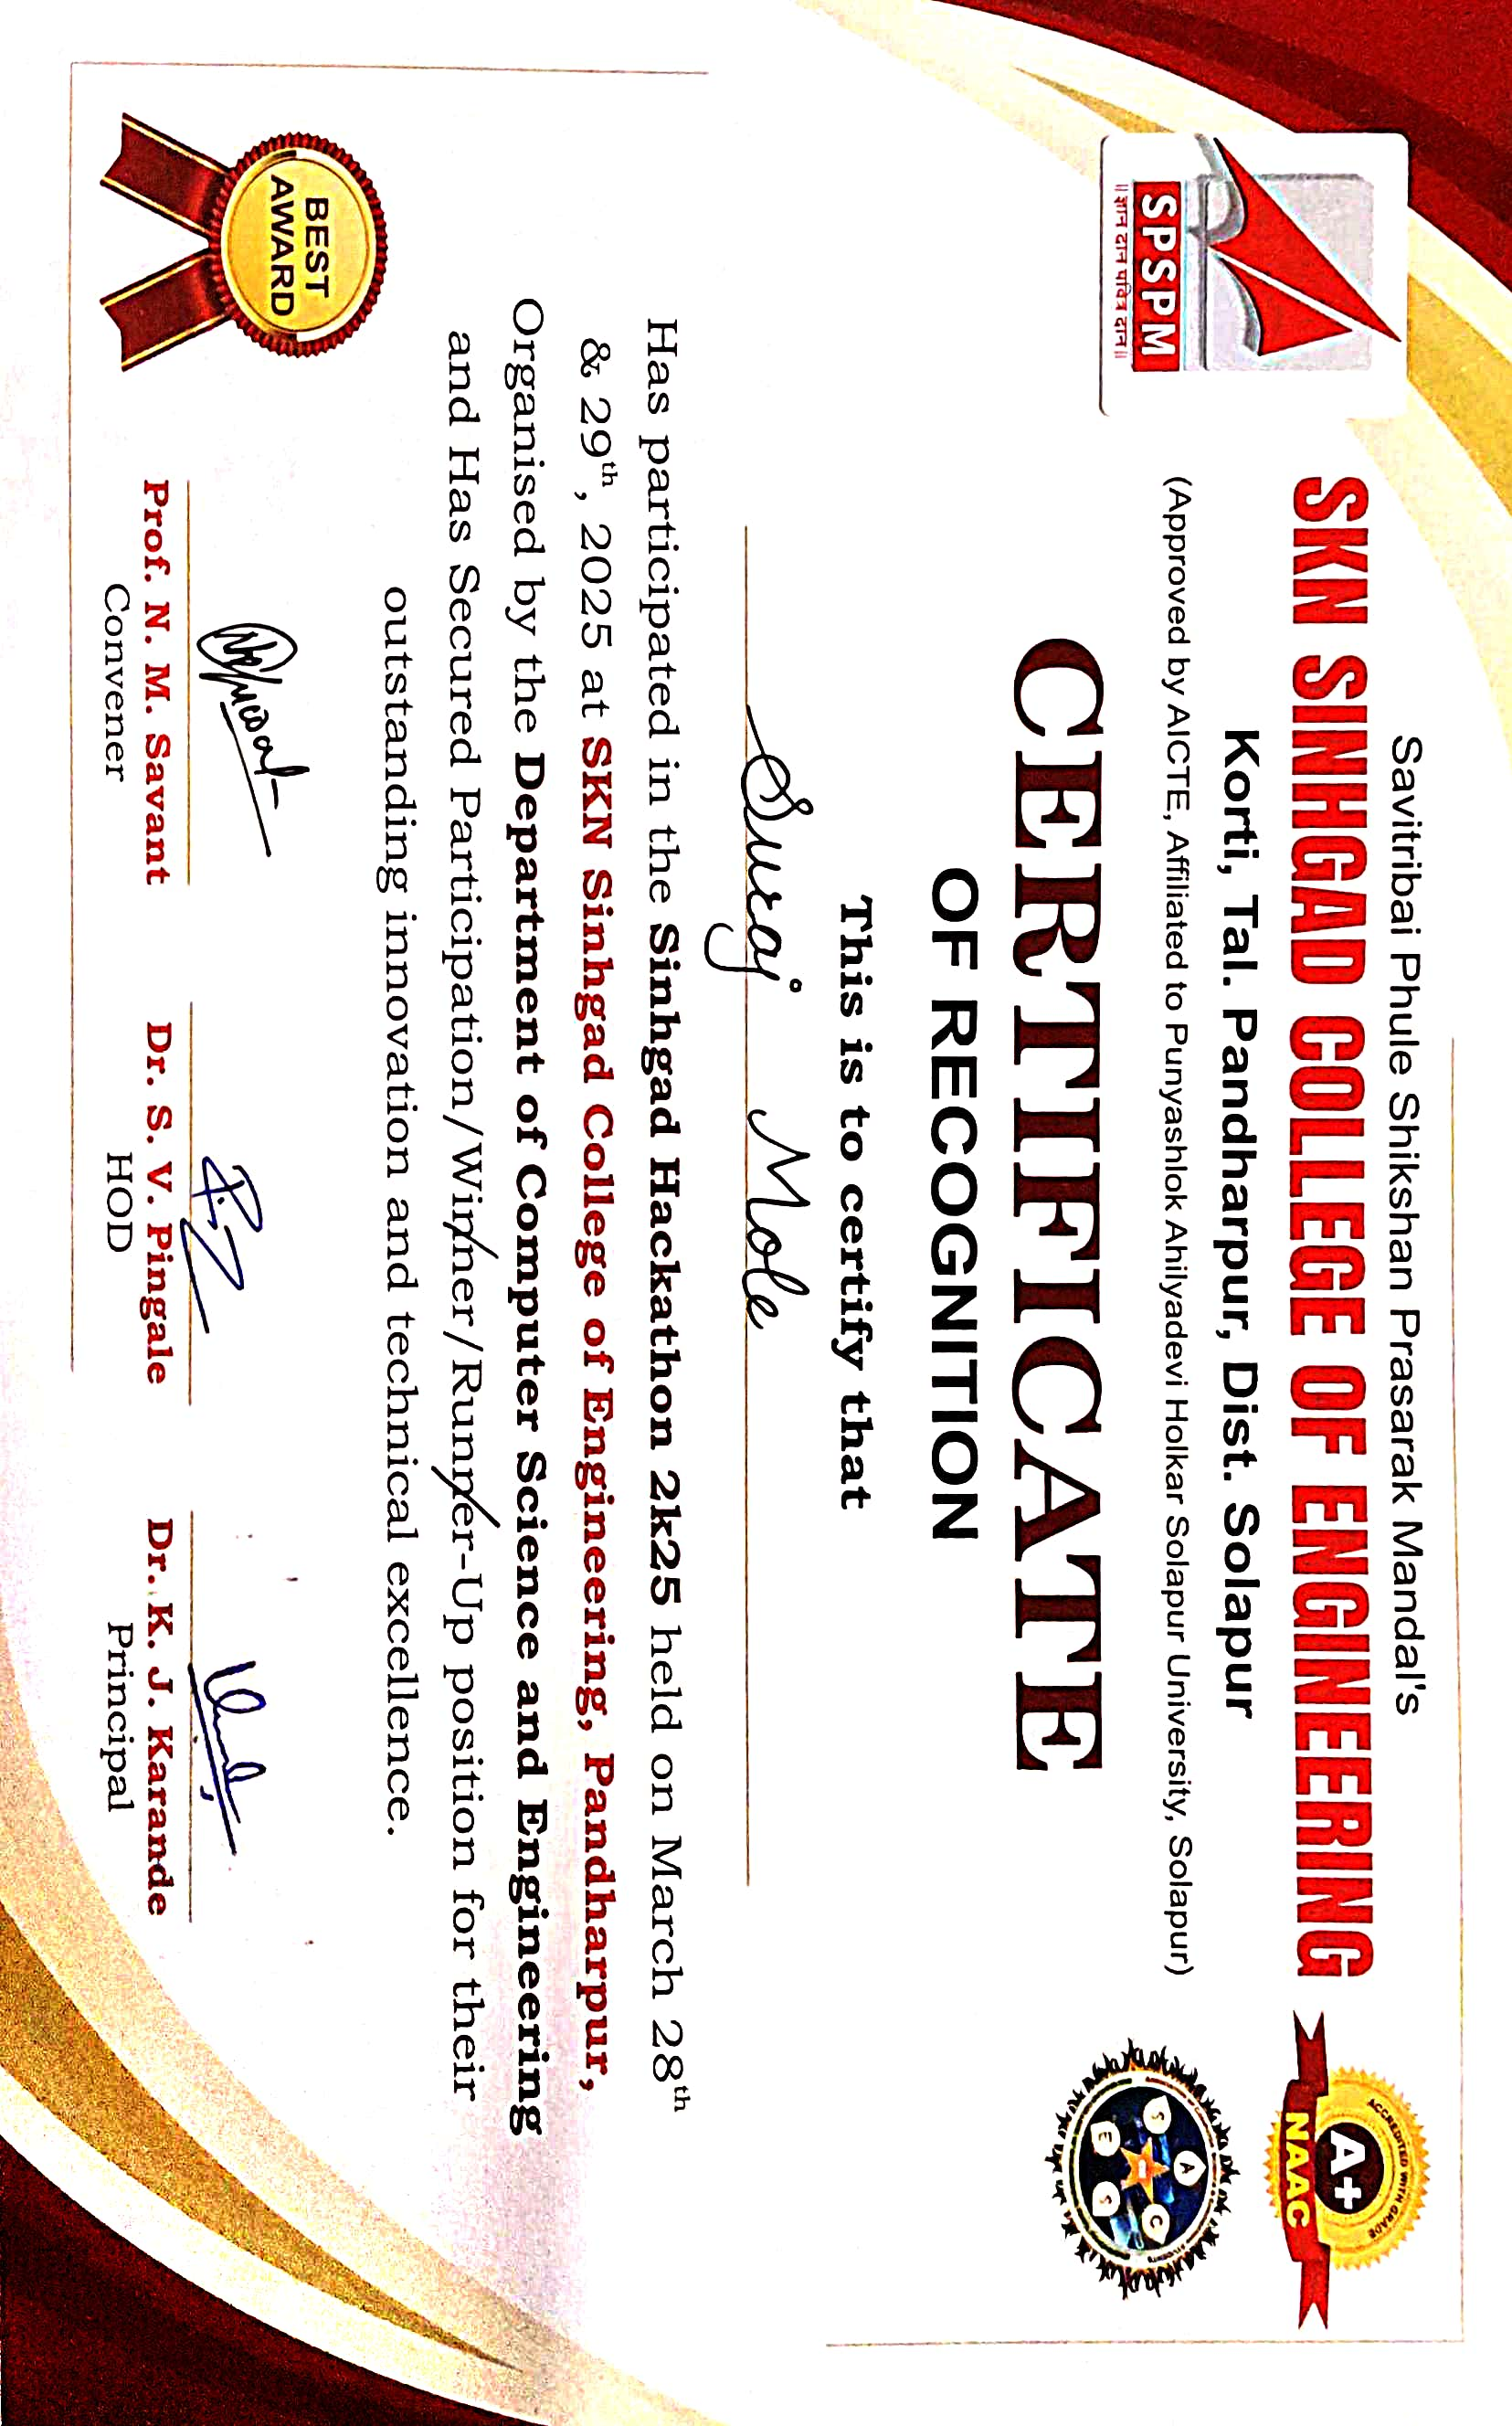 Savitribai Phule Shikshan Prasarak Mandal's
SKN SINHGAD COLLEGE OF ENGINEERING
Korti, Tal. Pandharpur, Dist. Solapur
(Approved by AICTE, Affiliated to Punyashlok Ahilyadevi Holkar Solapur University, Solapur)
SPSPM
॥ ज्ञान दान पवित्र दान ॥
ACCREDITED WITH GRADE
A+
NAAC
A
S C
E S
CERTIFICATE
OF RECOGNITION
This is to certify that
Suraj Mole
Has participated in the Sinhgad Hackathon 2k25 held on March 28th
& 29th, 2025 at SKN Sinhgad College of Engineering, Pandharpur,
Organised by the Department of Computer Science and Engineering
and Has Secured Participation/Winner/Runner-Up position for their
outstanding innovation and technical excellence.
BEST
AWARD
Prof. N. M. Savant
Convener
Dr. S. V. Pingale
HOD
Dr. K. J. Karande
Principal